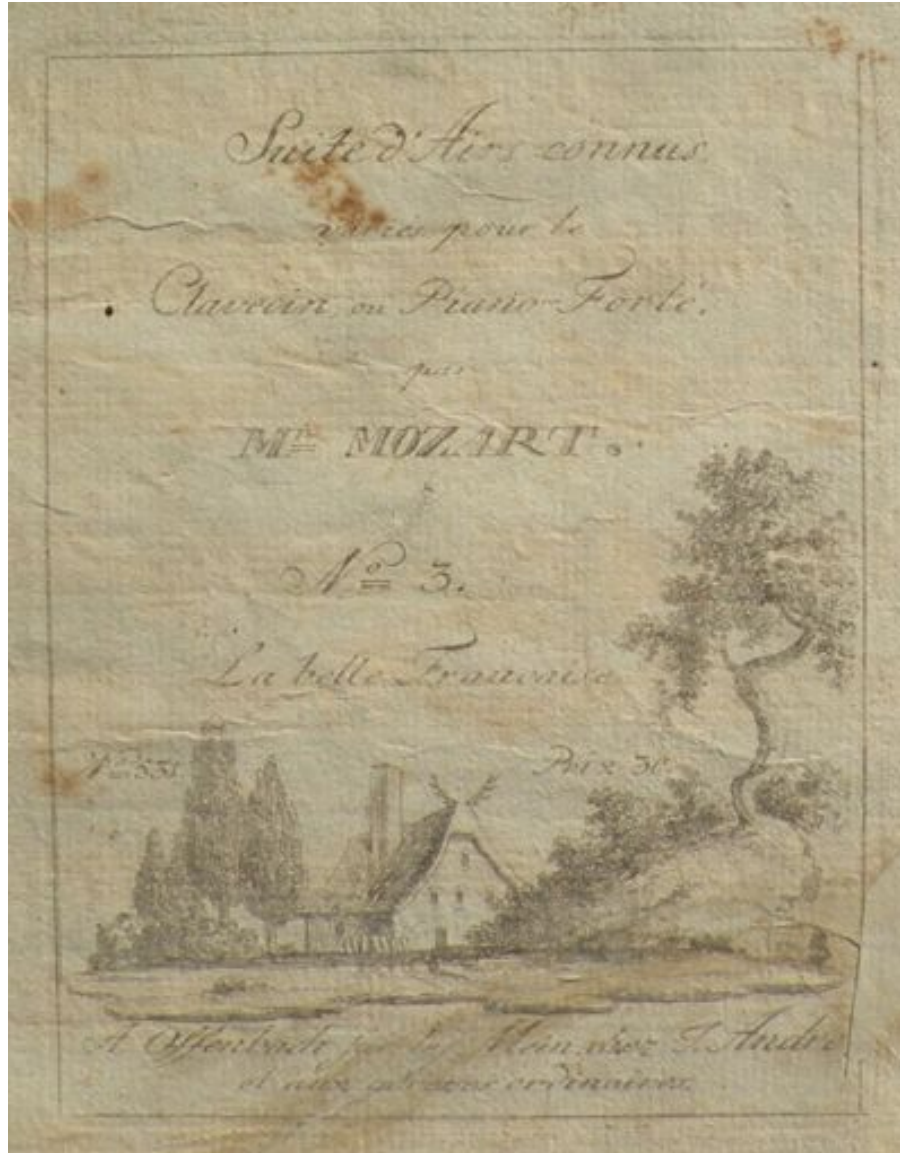 Suite d'Airs connus
variés pour le
Clavecin ou Piano-Forté.
par
Mr. MOZART.
No 3.
La belle Francaise
No 531 Prix 30
A Offenbach sur le Mein, chez J. André
et aux adresses ordinaires.